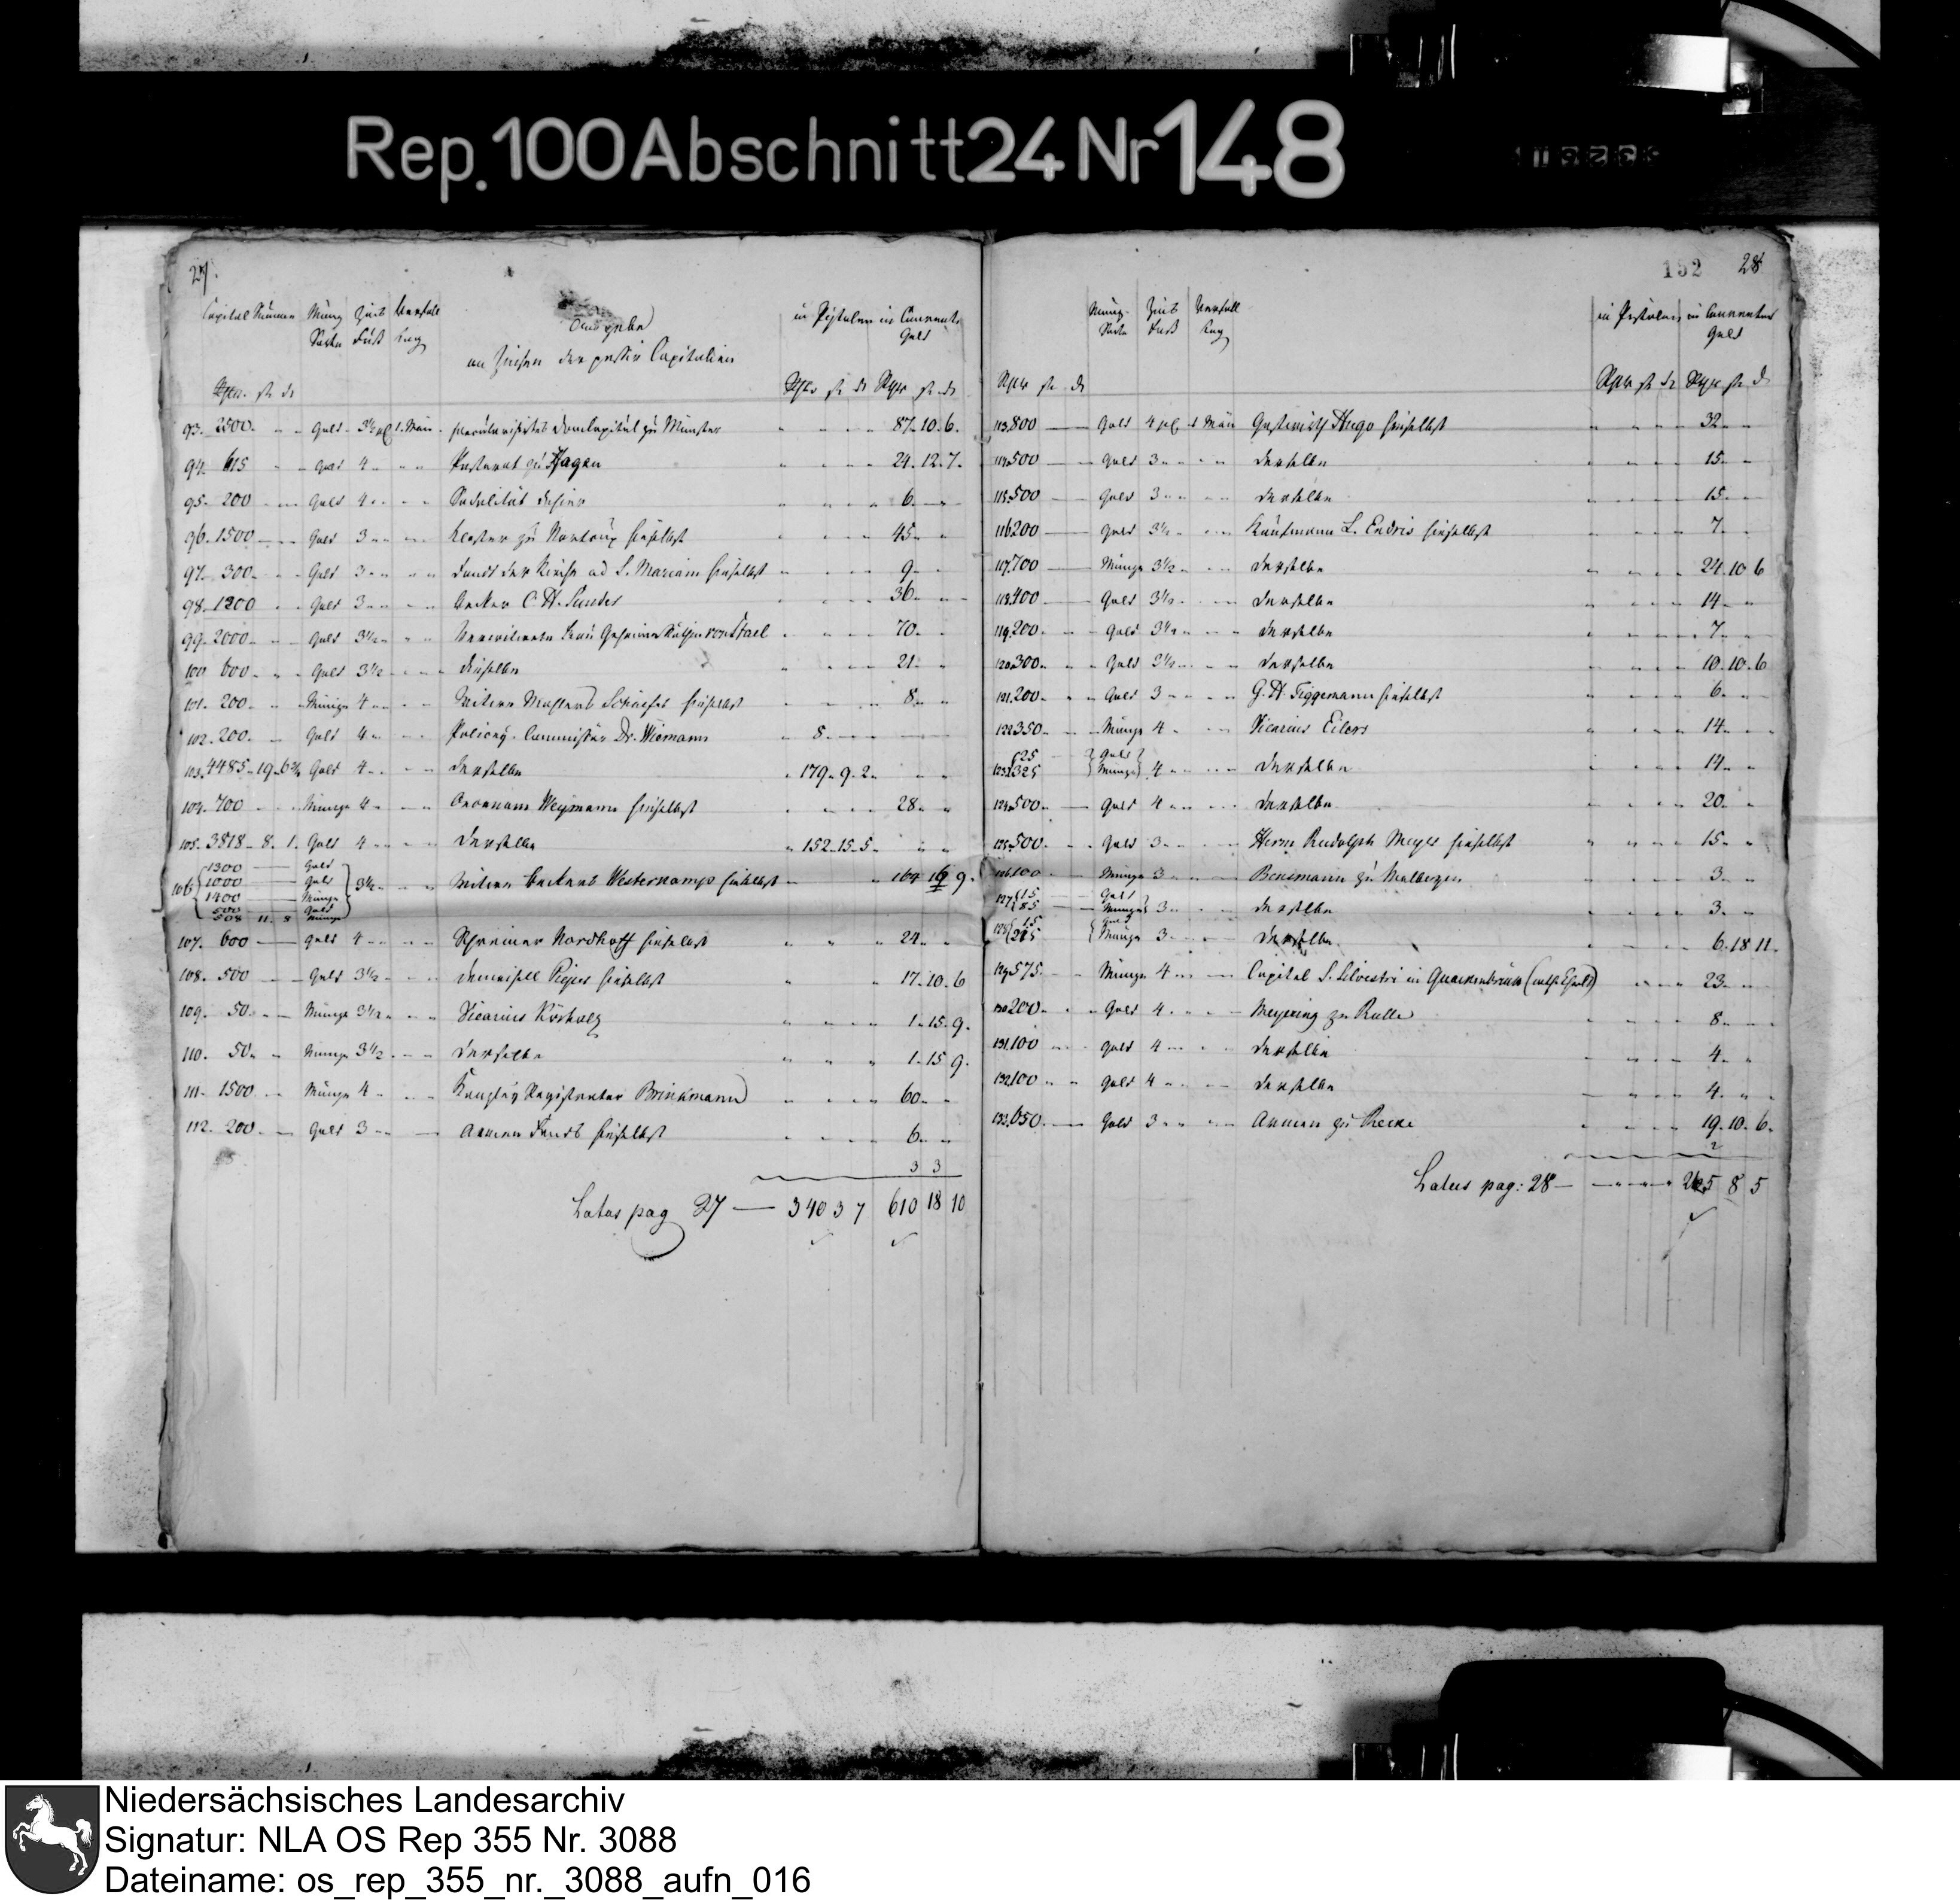 Rep. 100 Abschnitt 24 Nr 148
27.
Capital Summen Münz Sorte Zins Fuß Verfall Tag Ausgabe an Zinsen der passiv Capitalien in Pistolen in Courent Geld
Rthlr. ß d Rthlr ß d Rthlr ß d
93. 2500. Gold 3½ pC 1. Mai. saecularisirtes DomCapitul zu Münster 87. 10. 6.
94. 615 Gold 4 Pastorat zu Hagen 24. 12. 7.
95. 200 Gold 4 Sodalität 6.
96. 1500 Gold 3 Kloster zu hieselbst 45
97. 300. Gold 3 Fundt der Kirche ad S. Mariam hieselbst 9
98. 1200 Gold 3 C. H. Sander 36.
99. 2000 Gold 3½ Frau Geheime Räthin von Stael 70
100 600 Gold 3½ dieselbe 21.
101. 200 Münze 4 Wittwe Schaefer hieselbst 8.
102. 200. Gold 4 Policey-Commissär Dr. Wiemann 8.
103. 4485 19. 6¾ Gold 4 derselbe 179. 9. 2
104. 700 Münze 4 Oeconom Weymann hieselbst 28
105. 3818 8. 1. Gold 4 derselbe 152. 15. 5
106 { 1300 Gold
1000 Gold
1400 Münze } 3½ Wittwe Westerkamp hieselbst 164 16 9.
500 Gold
508 11. 8 Münze
107. 600 Gold 4 Schreiner Nordhoff hieselbst 24
108. 500 Gold 3½ Demoisell hieselbst 17. 10. 6
109. 50. Münze 3½ Vicarius 1. 15. 9.
110. 50. Münze 3½ derselbe 1. 15 9.
111. 1500 Münze 4 Kanzley Registrator Brinkmann 60
112. 200. Gold 3 Armen Fundt hieselbst 6
3 3
Latus pag 27 — 340 3 7 610 18 10
152 28
Münz-Sorte Zins Fuß Verfall Tag in Pistolen in Courentem Geld
Rthlr ß d Rthlr ß d Rthlr ß d
113. 800 Gold 4 pC 1 Mai Hugo hieselbst 32
114. 500 Gold 3 derselbe 15
115. 500 Gold 3 derselbe 15
116 200 Gold 3½ Kaufmann L. Endris hieselbst 7
117. 700 Münze 3½ derselbe 24. 10 6
118. 400 Gold 3½ derselbe 14
119. 200. Gold 3½ derselbe 7
120. 300. Gold 3½ derselbe 10. 10. 6
121. 200. Gold 3 G. H. Tiggemann hieselbst 6
122 350 Münze 4 Vicarius Eilers 14
123 { 25 Gold
325 Münze } 4 derselbe 14
124. 500. Gold 4 derselbe 20
125. 500. Gold 3 Herrn Rudolph Meyer hieselbst 15
126. 100 Münze 3 Bensmann zu Malbergen 3
127 { 15 Gold
85 Münze } 3 derselbe 3
128 { 15 Gold
215 Münze 3 derselbe. 6. 18 11.
129. 575. Münze 4 Capitel S. Silvestri in Quackenbrück 23
130 200. Gold 4 Meyering zu Rulle 8
131. 100 Gold 4 derselbe 4
132. 100 Gold 4 derselbe 4
133. 650. Gold 3 Armen zu Recke 19. 10. 6.
2
Latus pag: 28 — 265 8 5
Niedersächsisches Landesarchiv
Signatur: NLA OS Rep 355 Nr. 3088
Dateiname: os_rep_355_nr._3088_aufn_016